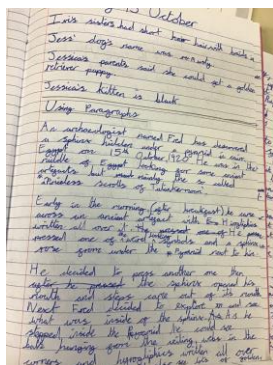 13 October
Iris' sisters had short hair with beads &
Jess' dog's name was
Jessica's parents said she would get a golden
retriever puppy.
Jessica's kitten is black
Using Paragraphs
An archaeologist named Fred has discovered
a sphinx hidden under a pyramid in
Egypt on 15th October 1920. He was in the
middle of Egypt looking for some ancient
artifacts but mainly the called
scrolls of Tutankhamun.
Early in the morning (after breakfast) he came
across an ancient object with Egyptian
written all over it. He
pressed one of the symbols and a sphinx
rose from under the pyramid next to him.
He decided to press another one then
after he pressed the sphinx opened his
mouth and steps came out of its mouth
Next Fred decided to explore and see
what was inside of the sphinx. As he
stepped inside the Pyramid he could see
hanging from the ceiling, in the
corners and written all over